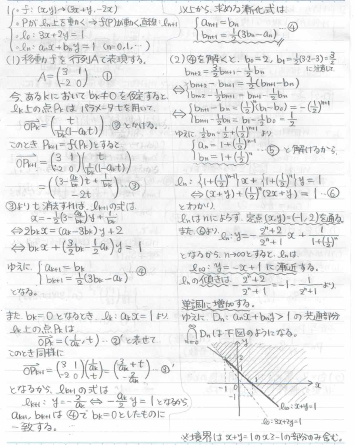 f: (x,y)→(3x+y, -2x)
・Pが lₙ上を動く→f(P)が動く直線: lₙ₊₁
・l₀: 3x+2y=1
・lₙ: aₙx+bₙy=1 (n=0,1,…)
(1) 移動fを行列Aで表現する。
A=(3 1 / -2 0) ①
今、あるkにおいてbₖ≠0を仮定すると、
lₖ上の点Pₖは パラメータtを用いて
OPₖ=(t / 1/bₖ(1-aₖt)) ② とかける。
このとき Pₖ₊₁=f(Pₖ)とすると
OPₖ₊₁=(3 1 / -2 0)(t / 1/bₖ(1-aₖt))
=((3-aₖ/bₖ)t+1/bₖ / -2t) ③
③よりtを消去すれば、lₖ₊₁の式は
x=-1/2(3-aₖ/bₖ)y+1/bₖ
⇔2bₖx=(aₖ-3bₖ)y+2
⇔bₖx+(3/2bₖ-1/2aₖ)y=1
ゆえに {aₖ₊₁=bₖ
bₖ₊₁=1/2(3bₖ-aₖ) ④
となる。
また bₖ=0となるとき、lₖ: aₖx=1より
lₖ上の点Pₖは
OPₖ=(1/aₖ, t) …②' と表せて
このとき同様に
OPₖ₊₁=(3 1 / -2 0)(1/aₖ / t)=(3/aₖ+t / -2/aₖ) …③'
となるから、lₖ₊₁の式は
lₖ₊₁: y=-2/aₖ ⇔ -aₖ/2 y=1 となるから
aₖ₊₁, bₖ₊₁は④でbₖ=0としたものに
一致する。
以上から、求める漸化式は
{aₙ₊₁=bₙ
bₙ₊₁=1/2(3bₙ-aₙ) ④
(2) ④を解くと、b₀=2, b₁=1/2(3·2-3)=3/2
に注意して
bₙ₊₂=3/2bₙ₊₁-1/2bₙ
⇔{bₙ₊₂-bₙ₊₁=1/2(bₙ₊₁-bₙ)
bₙ₊₂-1/2bₙ₊₁=bₙ₊₁-1/2bₙ
⇔{bₙ₊₁-bₙ=(1/2)ⁿ(b₁-b₀)=-(1/2)ⁿ⁺¹
bₙ₊₁-1/2bₙ=b₁-1/2b₀=1/2
ゆえに 1/2bₙ=1/2+(1/2)ⁿ⁺¹ より
{aₙ=1+(1/2)ⁿ⁻¹
bₙ=1+(1/2)ⁿ ⑤ と解けるから、
lₙ: {1+(1/2)ⁿ⁻¹}x+{1+(1/2)ⁿ}y=1
⇔(x+y)+(1/2)ⁿ(2x+y)=1 …⑥
とわかり、
lₙはnによらず、定点(x,y)=(-1,2)を通る。
また⑥より、lₙ: y=-(2ⁿ+2)/(2ⁿ+1) x+1/(1+(1/2)ⁿ)
となるから、n→∞とすると、lₙは、
l∞: y=-x+1 に漸近する。
lₙの傾きは、-(2ⁿ+2)/(2ⁿ+1)=-1-1/(2ⁿ+1)より
単調に増加する。
ゆえに、Dₙ: aₙx+bₙy>1 の共通部分
∩Dₙは下図のようになる。
y
2
1
-1
1
x
-1
l∞: x+y=1
l₀: 3x+2y=1
※境界は x+y=1のx≧-1の部分のみ含む。